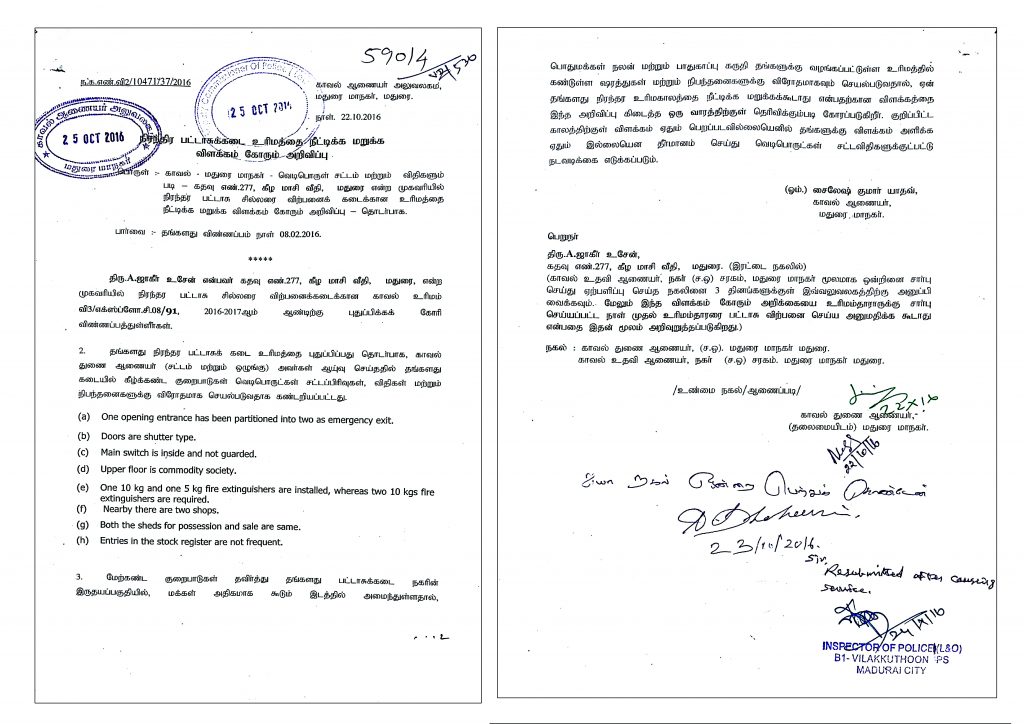 590/4
ந.க.எண்.வி2/10471/37/2016
25 OCT 2016
காவல் ஆணையர் அலுவலகம்,
மதுரை மாநகர், மதுரை.
நாள். 22.10.2016
காவல் ஆணையர் அலுவலகம்
25 OCT 2016
மதுரை மாநகர்
நிரந்தர பட்டாசுக்கடை உரிமத்தை நீட்டிக்க மறுக்க
விளக்கம் கோரும் அறிவிப்பு
பொருள் :- காவல் - மதுரை மாநகர் - வெடிபொருள் சட்டம் மற்றும் விதிகளும்
படி – கதவு எண்.277, கீழ மாசி வீதி, மதுரை என்ற முகவரியில்
நிரந்தர பட்டாசு சில்லரை விற்பனைக் கடைக்கான உரிமத்தை
நீட்டிக்க மறுக்க விளக்கம் கோரும் அறிவிப்பு – தொடர்பாக.
பார்வை :- தங்களது விண்ணப்பம் நாள் 08.02.2016.
*****
திரு.A.ஜாகீர் உசேன் என்பவர் கதவு எண்.277, கீழ மாசி வீதி, மதுரை, என்ற
முகவரியில் நிரந்தர பட்டாசு சில்லரை விற்பனைக்கடைக்கான காவல் உரிமம்
வி3/எக்ஸ்ப்ளோ.சி.08/91, 2016-2017ஆம் ஆண்டிற்கு புதுப்பிக்கக் கோரி
விண்ணப்பத்துள்ளீர்கள்.
2. தங்களது நிரந்தர பட்டாசுக் கடை உரிமத்தை புதுப்பிப்பது தொடர்பாக, காவல்
துணை ஆணையர் (சட்டம் மற்றும் ஒழுங்கு) அவர்கள் ஆய்வு செய்ததில் தங்களது
கடையில் கீழ்க்கண்ட குறைபாடுகள் வெடிபொருட்கள் சட்டப்பிரிவுகள், விதிகள் மற்றும்
நிபந்தனைகளுக்கு விரோதமாக செயல்படுவதாக கண்டறியப்பட்டது.
(a) One opening entrance has been partitioned into two as emergency exit.
(b) Doors are shutter type.
(c) Main switch is inside and not guarded.
(d) Upper floor is commodity society.
(e) One 10 kg and one 5 kg fire extinguishers are installed, whereas two 10 kgs fire
extinguishers are required.
(f) Nearby there are two shops.
(g) Both the sheds for possession and sale are same.
(h) Entries in the stock register are not frequent.
3. மேற்கண்ட குறைபாடுகள் தவிர்த்து தங்களது பட்டாசுக்கடை நகரின்
இருதயப்பகுதியில், மக்கள் அதிகமாக கூடும் இடத்தில் அமைந்துள்ளதால்,
...2
பொதுமக்கள் நலன் மற்றும் பாதுகாப்பு கருதி தங்களுக்கு வழங்கப்பட்டுள்ள உரிமத்தில்
கண்டுள்ள ஷரத்துகள் மற்றும் நிபந்தனைகளுக்கு விரோதமாகவும் செயல்படுவதால், ஏன்
தங்களது நிரந்தர உரிமகாலத்தை நீட்டிக்க மறுக்கக்கூடாது என்பதற்கான விளக்கத்தை
இந்த அறிவிப்பு கிடைத்த ஒரு வாரத்திற்குள் தெரிவிக்கும்படி கோரப்படுகிறீர். குறிப்பிட்ட
காலத்திற்குள் விளக்கம் ஏதும் பெறப்படவில்லையெனில் தங்களுக்கு விளக்கம் அளிக்க
ஏதும் இல்லையென தீர்மானம் செய்து வெடிபொருட்கள் சட்டவிதிகளுக்குட்பட்டு
நடவடிக்கை எடுக்கப்படும்.
(ஓம்.) சைலேஷ் குமார் யாதவ்,
காவல் ஆணையர்,
மதுரை மாநகர்.
பெறுநர்
திரு.A.ஜாகீர் உசேன்,
கதவு எண்.277, கீழ மாசி வீதி, மதுரை. (இரட்டை நகலில்)
(காவல் உதவி ஆணையர், நகர் (ச.ஒ) சரகம், மதுரை மாநகர் மூலமாக ஒன்றினை சார்பு
செய்து ஏற்பளிப்பு செய்த நகலினை 3 தினங்களுக்குள் இவ்வலுவலகத்திற்கு அனுப்பி
வைக்கவும். மேலும் இந்த விளக்கம் கோரும் அறிக்கையை உரிமம்தாரருக்கு சார்பு
செய்யப்பட்ட நாள் முதல் உரிமம்தாரரை பட்டாசு விற்பனை செய்ய அனுமதிக்க கூடாது
என்பதை இதன் மூலம் அறிவுறுத்தப்படுகிறது.)
நகல் : காவல் துணை ஆணையர், (ச.ஒ). மதுரை மாநகர் மதுரை.
காவல் உதவி ஆணையர், நகர் (ச.ஒ) சரகம். மதுரை மாநகர் மதுரை.
/உண்மை நகல்/ஆணைப்படி/
காவல் துணை ஆணையர்,-
(தலைமையிடம்) மதுரை மாநகர்.
22/10/16
23/10/2016.
Sir,
Resubmitted after causing
service.
INSPECTOR OF POLICE (L&O)
B1- VILAKKUTHOON PS
MADURAI CITY